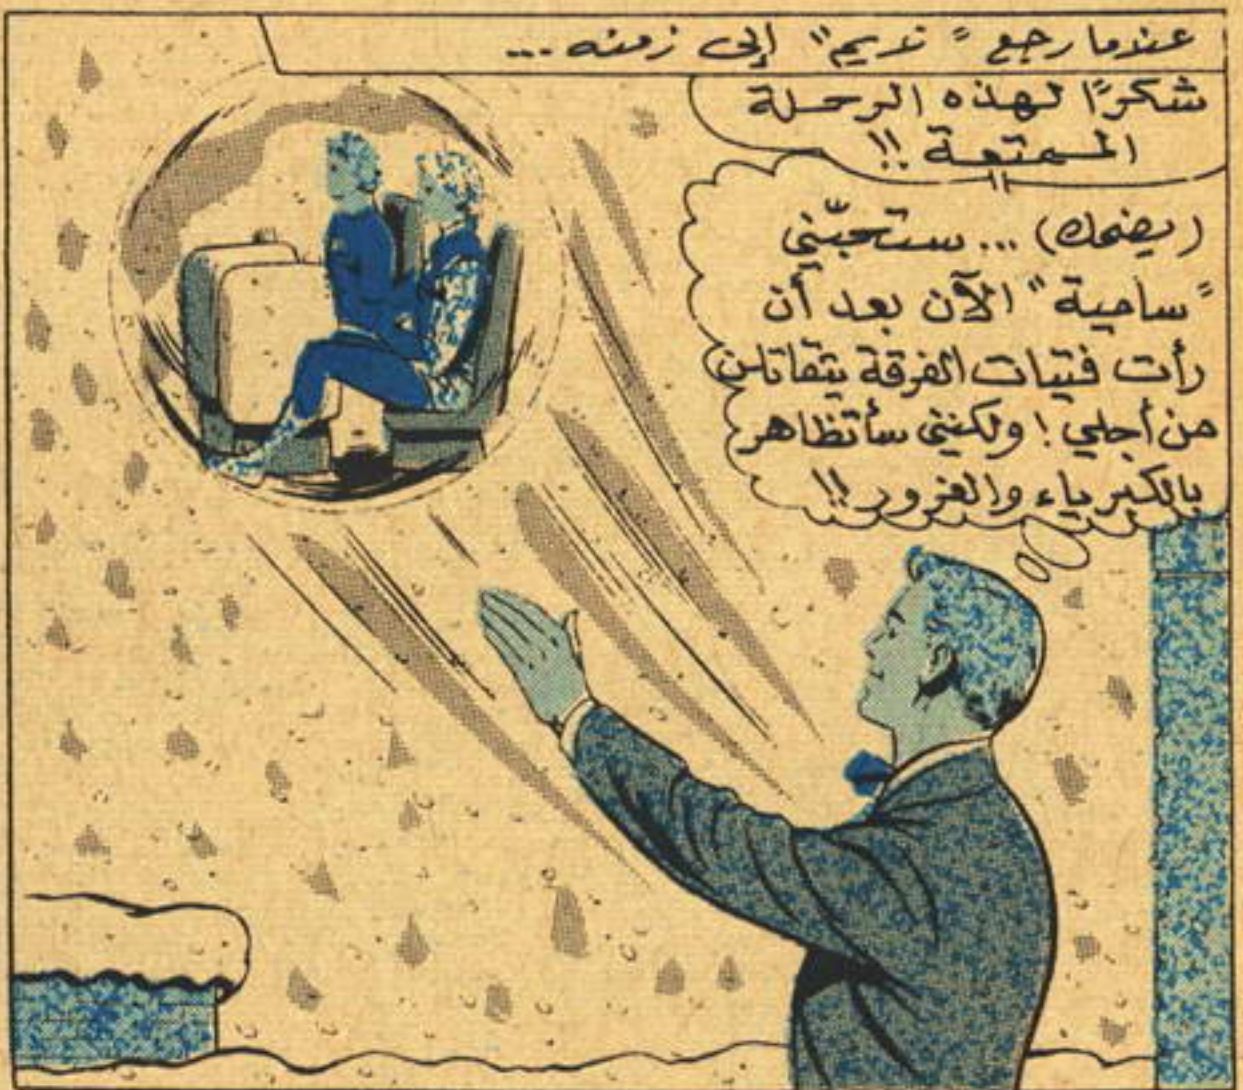 عندما رجع "نديم" إلى زمنه...
شكرًا لهذه الرحلة
الممتعة!!
(يضحك)... ستحبّني
"سامية" الآن بعد أن
رأت فتيات الفرقة يتقاتلن
من أجلي! ولكنني سأتظاهر
بالكبرياء والغرور!!